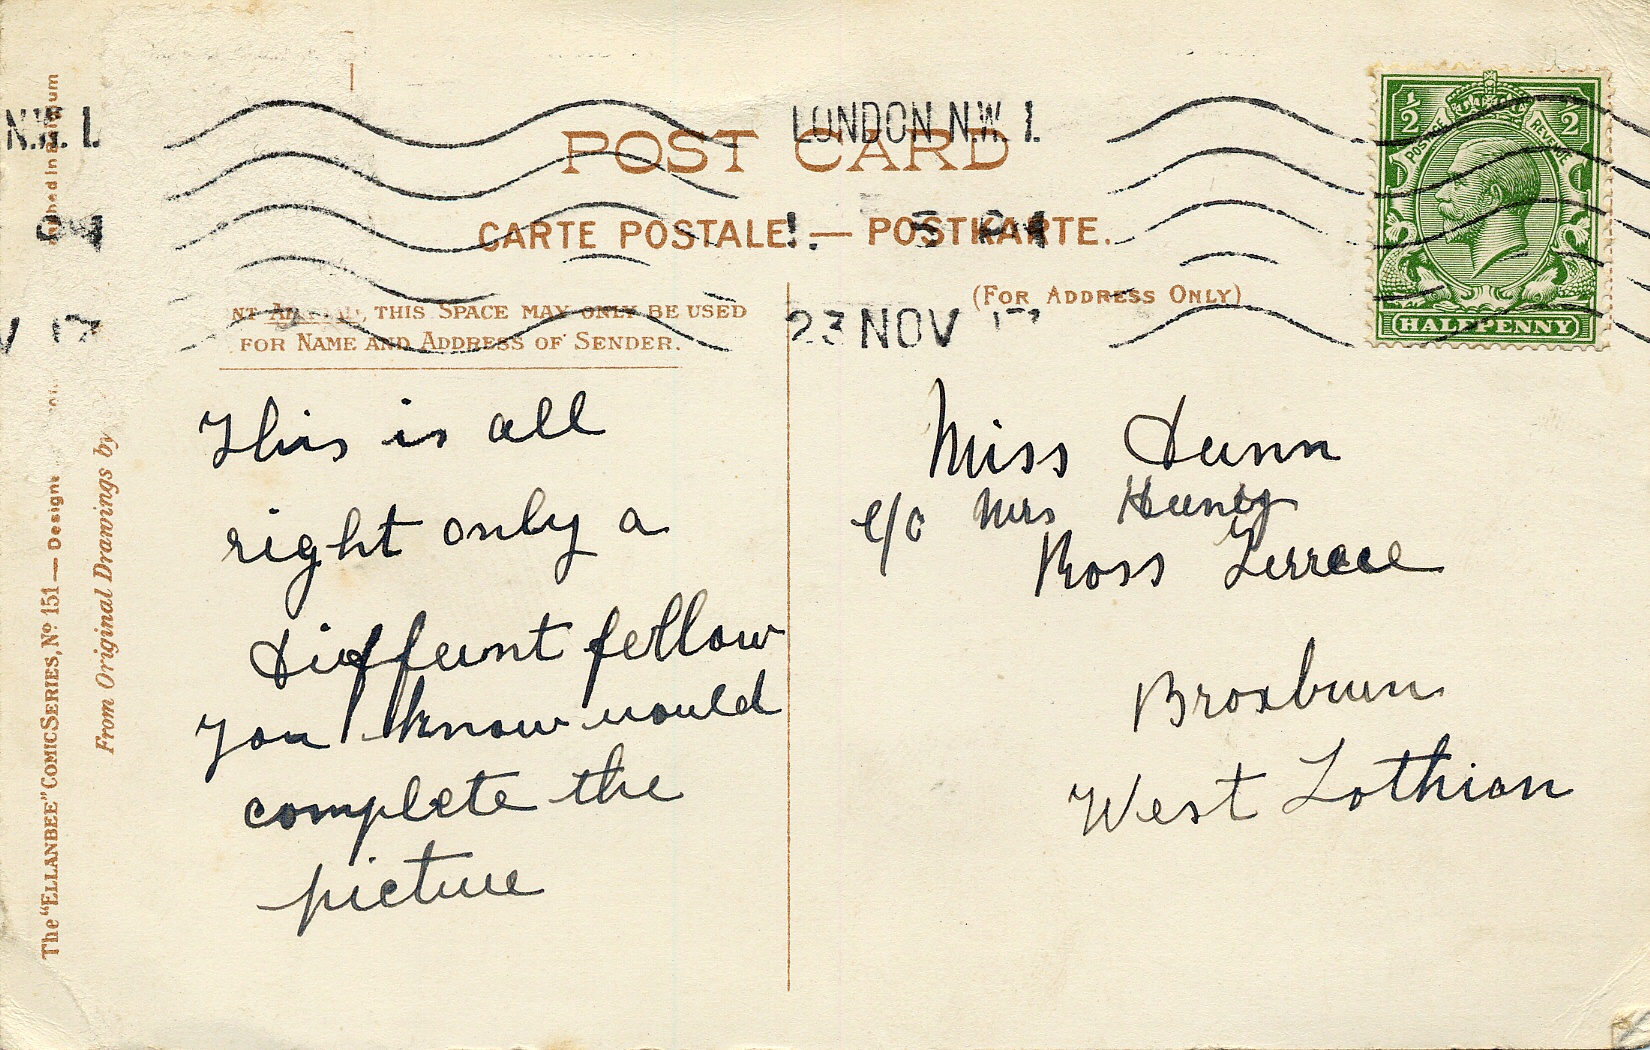 N.W. 1.
LONDON N.W. 1.
POST CARD
CARTE POSTALE. — POSTKARTE.
23 NOV 17
THIS SPACE MAY ONLY BE USED
FOR NAME AND ADDRESS OF SENDER.
(FOR ADDRESS ONLY)
1/2 POSTAGE REVENUE 1/2
HALFPENNY
This is all
right only a
Different fellow
you know would
complete the
picture
Miss Dunn
c/o Mrs
Ross Terrace
Broxburn
West Lothian
The "ELLANBEE" COMIC SERIES, No 151 — Designs
From Original Drawings by